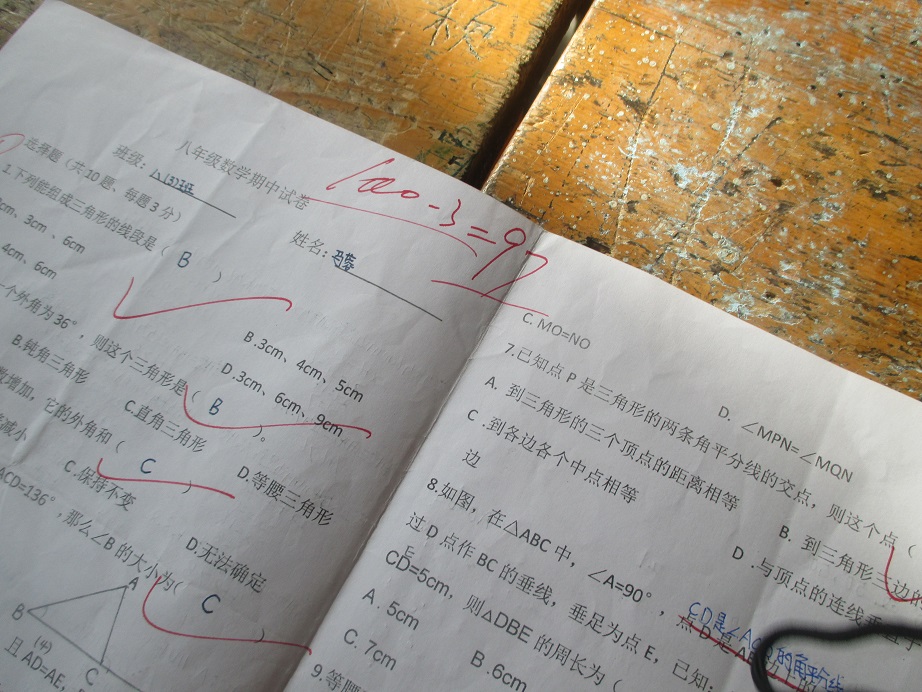 八年级数学期中试卷
100-3=97
班级：八(3)班
姓名：
选择题（共10题、每题3分）
1.下列能组成三角形的线段是（ B ）
3cm、6cm
B.3cm、4cm、5cm
4cm、6cm
D.3cm、6cm、9cm
一个外角为36°，则这个三角形是（ B ）。
B.钝角三角形
C.直角三角形
D.等腰三角形
增加，它的外角和（ C ）
减小
C.保持不变
D.无法确定
ACD=136°，那么∠B的大小为（ C ）
A
B
C
且AD=AE，
C. MO=NO
D. ∠MPN=∠MQN
7.已知点P是三角形的两条角平分线的交点，则这个点（
A. 到三角形的三个顶点的距离相等
B. 到三角形三边的
C.到各边各个中点相等
D.与顶点的连线垂直于
边
8.如图，在△ABC中，∠A=90°，点D是AB边上的
CD是∠ACB的角平分线
过D点作BC的垂线，垂足为点E，已知：
E
CD=5cm，则△DBE的周长为（
A.5cm
B.6cm
C.7cm
9.等腰